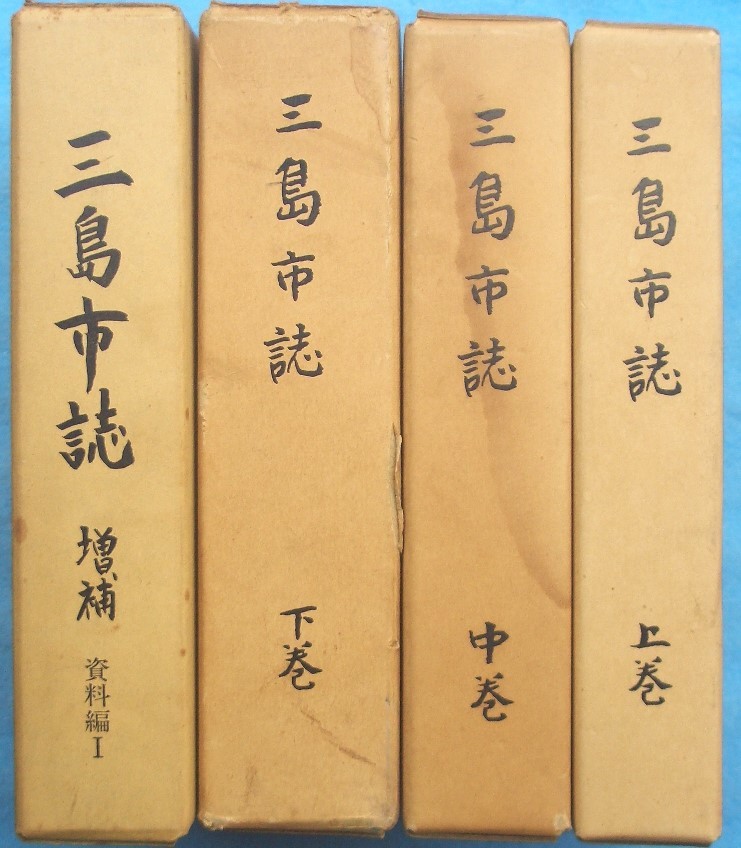 三島市誌
上巻
三島市誌
中巻
三島市誌
下巻
三島市誌
増補
資料編I